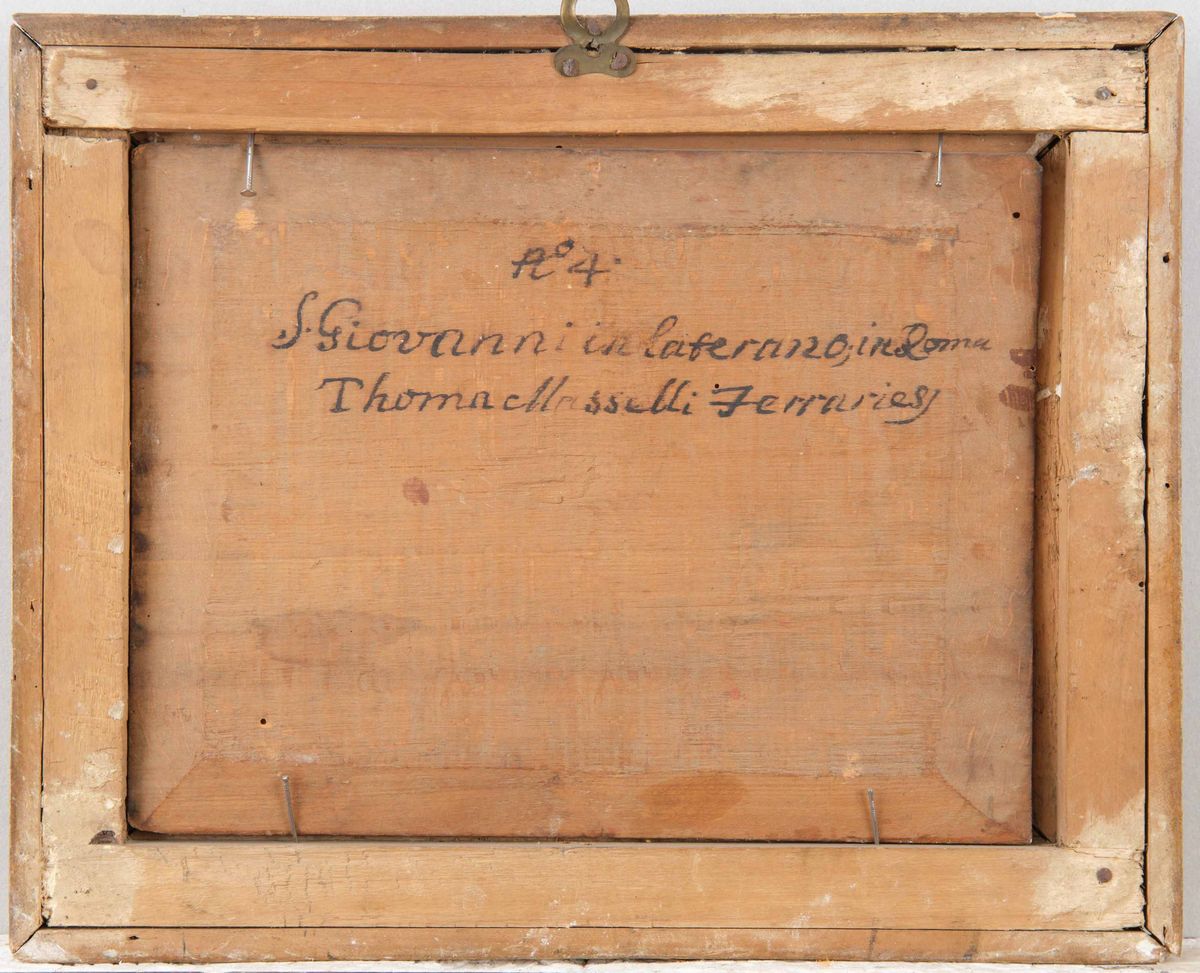 Nº 4.
S. Giovanni in laterano, in Roma
Thoma Masselli Ferraries